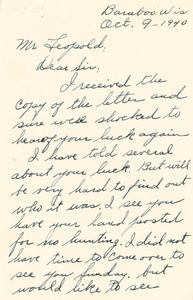 Baraboo Wis
Oct. 9-1940
Mr Leopold:
Dear Sir.
I received the
copy of the letter and
sure was shocked to
hear of your luck again
I have told several
about your luck. But will
be very hard to find out
who it was, I see you
have your land posted
for no hunting. I did not
have time to come over to
see you Sunday, but
would like to see